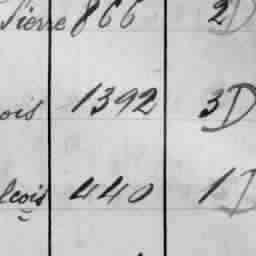 Pierre 866 2D
ois 1392 3D
lcois 440 1D